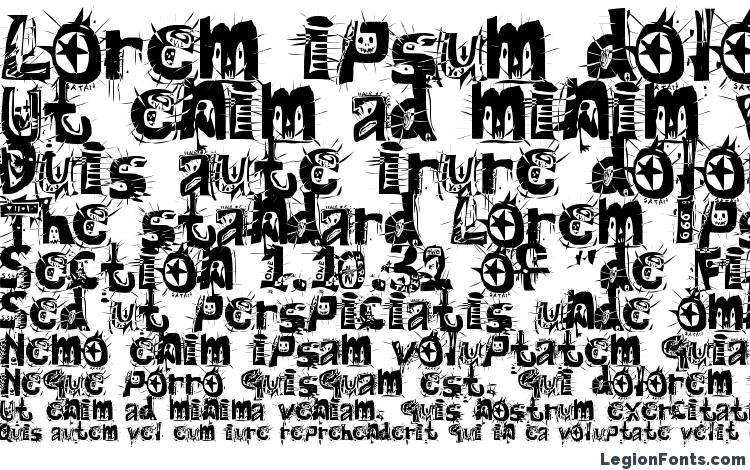 Lorem ipsum dolo
Ut enim ad minim v
Duis aute irure dolo
The standard Lorem ips
Section 1.10.32 of "de Fi
Sed ut perspiciatis unde om
Nemo enim ipsam voluptatem quia
Neque porro quisquam est, qui dolorem
Ut enim ad minima veniam, quis nostrum exercitat
Quis autem vel eum iure reprehenderit qui in ea voluptate velit
LegionFonts.com